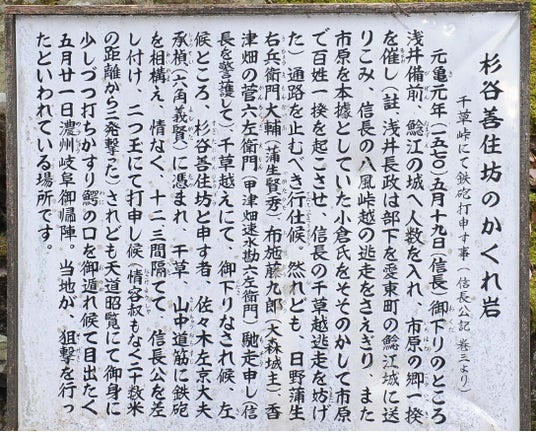 杉谷善住坊のかくれ岩
千草峠にて鉄砲打申す事（信長公記 巻三より）
元亀元年（一五七〇）五月十九日（信長）御下りのところ
浅井備前、鯰江の城へ人数を入れ、市原の郷一揆
を催し（註 浅井長政は部下を愛東町の鯰江城に送
りこみ、信長の八風峠越の逃走をさえぎり、また
市原を本據としていた小倉氏をそそのかして市原
で百姓一揆を起こさせ、信長の千草越逃走を妨げ
た）通路を止むべき行仕候。然れども、日野蒲生
右兵衛門大輔（蒲生賢秀）、布施藤九郎（大森城主）、香
津畑の菅六左衛門（甲津畑速水勘六左衛門）馳走申し（信
長を警護して）千草越えにて、御下りなされ候、左
候ところ、杉谷善住坊と申す者、佐々木左京大夫
承禎（六角義賢）に憑まれ、千草、山中道筋に鉄砲
を相構え、情なく、十二三間隔てて、信長公を差
し付け、二つ玉にて打申し候（情容赦もなく二十数米
の距離から三発撃った）されども天道昭覧にて御身に
少しづつ打ちかすり鰐の口を御遁れ候て目出たく
五月廿一日濃州岐阜御帰陣。当地が、狙撃を行っ
たといわれている場所です。